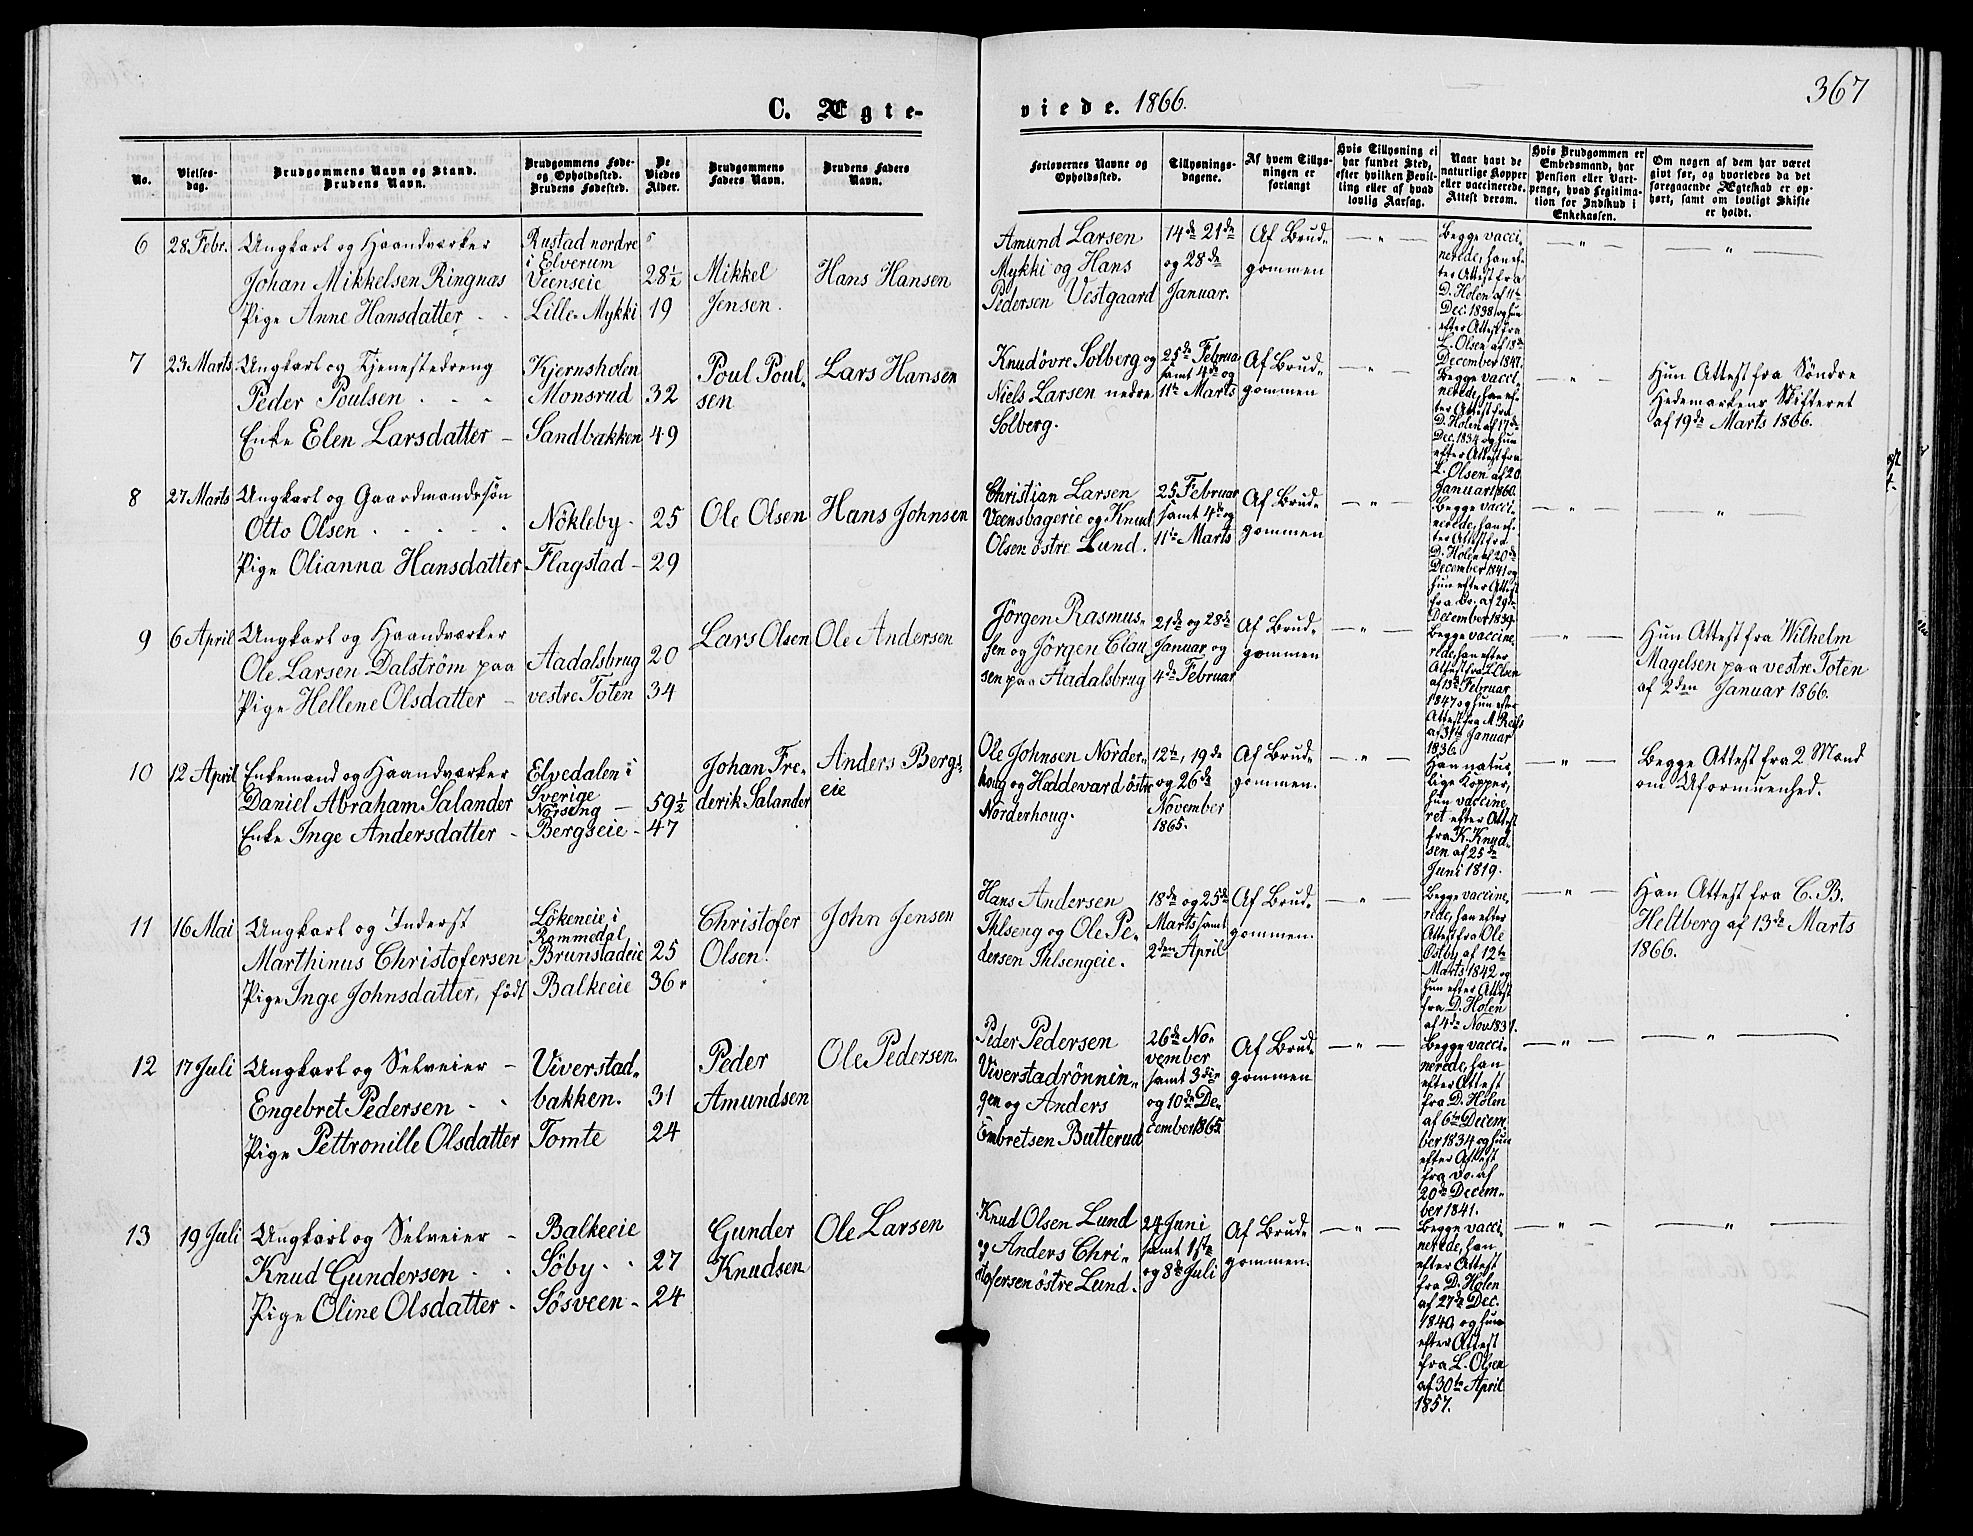 367
C. Ægte-
viede. 1866.
No.
Vielses-
dag.
Brudgommens Navn og Stand.
Brudens Navn.
Brudgommens Føde-
og Opholdssted.
Brudens Fødested.
De
Viedes
Alder.
Brudgommens
Faders Navn.
Brudens Faders
Navn.
Forlovernes Navne og
Opholdssted.
Tillysnings-
dagene.
Af hvem Tillys-
ningen er
forlangt
Hvis Tillysning ei
har fundet Sted,
efter hvilken Bevil-
ling eller af hvad
lovlig Aarsag.
Naar havt de
naturlige Kopper
eller vaccinerede.
Attest derom.
Hvis Brudgommen er
Embedsmand, har
Pension eller Vart-
penge, hvad Legitima-
tion for Indskud i
Enkekassen.
Om nogen af dem har været
gift før, og hvorledes da det
foregaaende Ægteskab er op-
hørt, samt om lovligt Skifte
er holdt.
6
28. Febr.
Ungkarl og Haandværker
Johan Mikkelsen Ringnæs
Pige Anne Hansdatter
Rustad nordre
i Elverum
Veenseie
Lille-Mykki
28½
19
Mikkel
Jensen.
Hans Hansen
Amund Larsen
Mykki og Hans
Pedersen Vestgaard
14de 21de
og 28de
Januar.
Af Brud-
gommen
— " —
Begge vacci-
nerede, han ef-
ter Attest fra
D. Holen af 11te
Dec. 1838 og hun
efter Attest fra
L. Olsen af 18de
December 1847.
— " —
— " —
7
23 Marts
Ungkarl og Tjenestedreng
Peder Poulsen
Enke Elen Larsdatter —
Kjernsholen
Monsrud
Sandbakken
32
49
Poul Poul-
sen
Lars Hansen
Knud øvre Solberg og
Niels Larsen nedre
Solberg.
25de Februar
samt 4de og
11te Marts
Af Brud-
gommen
— " —
Begge vacci-
nerede, han ef-
ter Attest fra
D. Holen af 17de
Dec. 1834 og hun
efter Attest fra
L. Olsen af 20
Januar 1860.
— " —
Hun Attest fra Søndre
Hedemarkens Skifteret
af 19de Marts 1866.
8
27 Marts
Ungkarl og Gaardmandssøn
Otto Olsen
Pige Olianna Hansdatter
Nökleby
Flagstad —
25
29
Ole Olsen
Hans Johnsen
Christian Larsen
Veensbagerie og Knud
Olsen østre Lund.
25 Februar
samt 4de og
11te Marts
Af Brud-
gommen
— " —
Begge vacci-
nerede, han ef-
ter Attest fra
D. Holen af 20de
December 1841 og
hun efter Attest
fra Do. af 29de
December 1839.
— " —
— " —
9
6 April
Ungkarl og Haandværker
Ole Larsen Dalström paa
Pige Hellene Olsdatter —
Aadalsbrug
vestre Toten
20
34
Lars Olsen
Ole Andersen
Jörgen Rasmus-
sen og Jörgen Clau-
sen paa Aadalsbrug
21de og 28de
Januar og
4de Februar
Af Brud-
gommen
— " —
Begge vaccine-
rede, han efter
Attest fra L. Olsen
af 13de Februar
1847 og hun efter
Attest fra M. Reils
af 31te Januar
1836.
— " —
Hun Attest fra Wilhelm
Magelsen paa vestre Toten
af 2den Januar 1866.
10
12 April
Enkemand og Haandværker
Daniel Abraham Salander
Enke Inge Andersdatter —
Elvedalen i
Sverige
Nörseng —
Bergseie —
59½
47
Johan Fre-
derik Salander
Anders Bergs-
eie
Ole Johnsen Norder-
houg og Heddevard østre
Norderhoug.
12te, 19de
og 26de
November
1865.
Af Brud-
gommen.
— " —
Han natur-
lige Kopper,
hun vaccine-
ret efter Attest
fra K. Knud-
sen af 25de
Juni 1819.
— " —
Begge Attest fra 2 Mænd
om Uformuenhed.
11
16 Mai
Ungkarl og Inderst
Marthinus Christofersen
Pige Inge Johnsdatter, født
Lökeneie i
Rommedal
Brunstadeie
Balkeeie
25
36
Christofer
Olsen.
John Jensen
Hans Andersen
Ihlseng og Ole Pe-
dersen Ihlsengeie.
18de og 25de
Marts samt
2den April
Af Brud-
gommen.
— " —
Begge vaccine-
rede, han efter
Attest fra Ole
Østby af 12te
Marts 1842 og
hun efter Attest
fra D. Holen
af 4de Nov 1831.
— " —
Han Attest fra C. B.
Heltberg af 13de Marts
1866.
12
17 Juli
Ungkarl og Selveier —
Engebret Pedersen
Pige Pettronille Olsdatter
Viverstad-
bakken.
Tomte
31
24
Peder
Amundsen
Ole Pedersen.
Peder Pedersen
Viverstadrönnin-
gen og Anders
Embretsen Butterud
26de No-
vember
samt 3die
og 10de De-
cember 1865.
Af Brud-
gommen
— " —
Begge vacci-
nerede, han
efter Attest
fra D. Holen
af 6te Decem-
ber 1834 og hun
efter Attest
fra Do. af
20de Decem-
ber 1841.
— " —
— " —
13
19 Juli
Ungkarl og Selveier —
Knud Gundersen
Pige Oline Olsdatter
Balkeeie
Söby
Sösveen
27
24
Gunder
Knudsen
Ole Larsen
Knud Olsen Lund
og Anders Chri-
stofersen østre Lund.
24 Juni
samt 1ste
og 8de Juli
Af Brud-
gommen.
— " —
Begge vacci-
nerede, han
efter Attest
fra D. Holen
af 27de Dec.
1840, og hun
efter Attest
fra L. Olsen
af 30te April
1857.
— " —
— " —